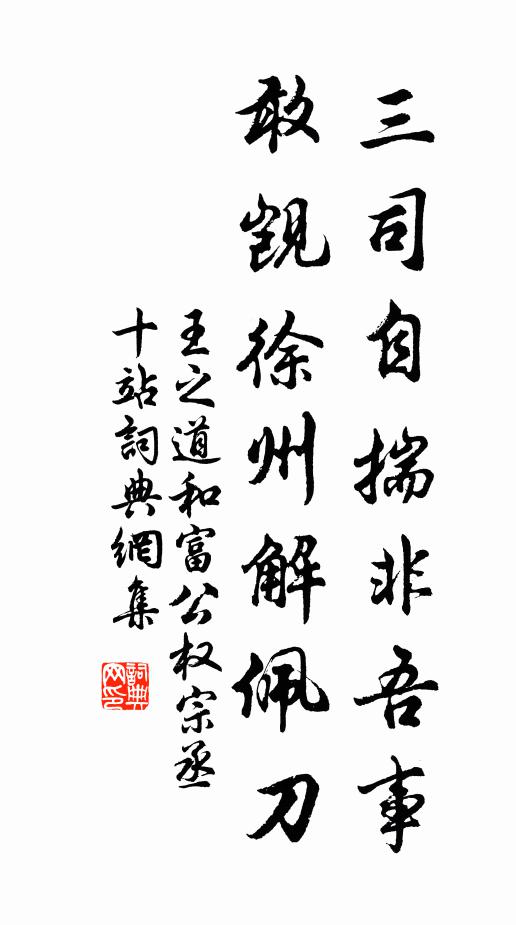 三司自揣非吾事
敢觊徐州解佩刀
王之道和富公权宗丞
十站詞典網集
詞典
网印